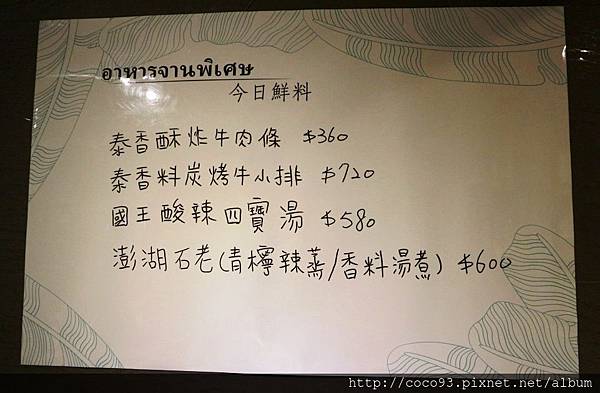 อาหารจานพิเศษ
今日鮮料
泰香酥炸牛肉條 $360
泰香料炭烤牛小排 $720
國王酸辣四寶湯 $580
澎湖石老(青檸辣蒸/香料湯煮) $600
http://coco93.pixnet.net/album